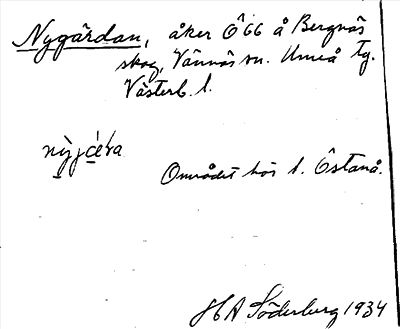 Nygärdan, åker Ö66 å Bergnäs
skog, Vännäs sn. Umeå tg.
Västerb. l.
Området hör t. Östanå.
H A Söderberg 1934